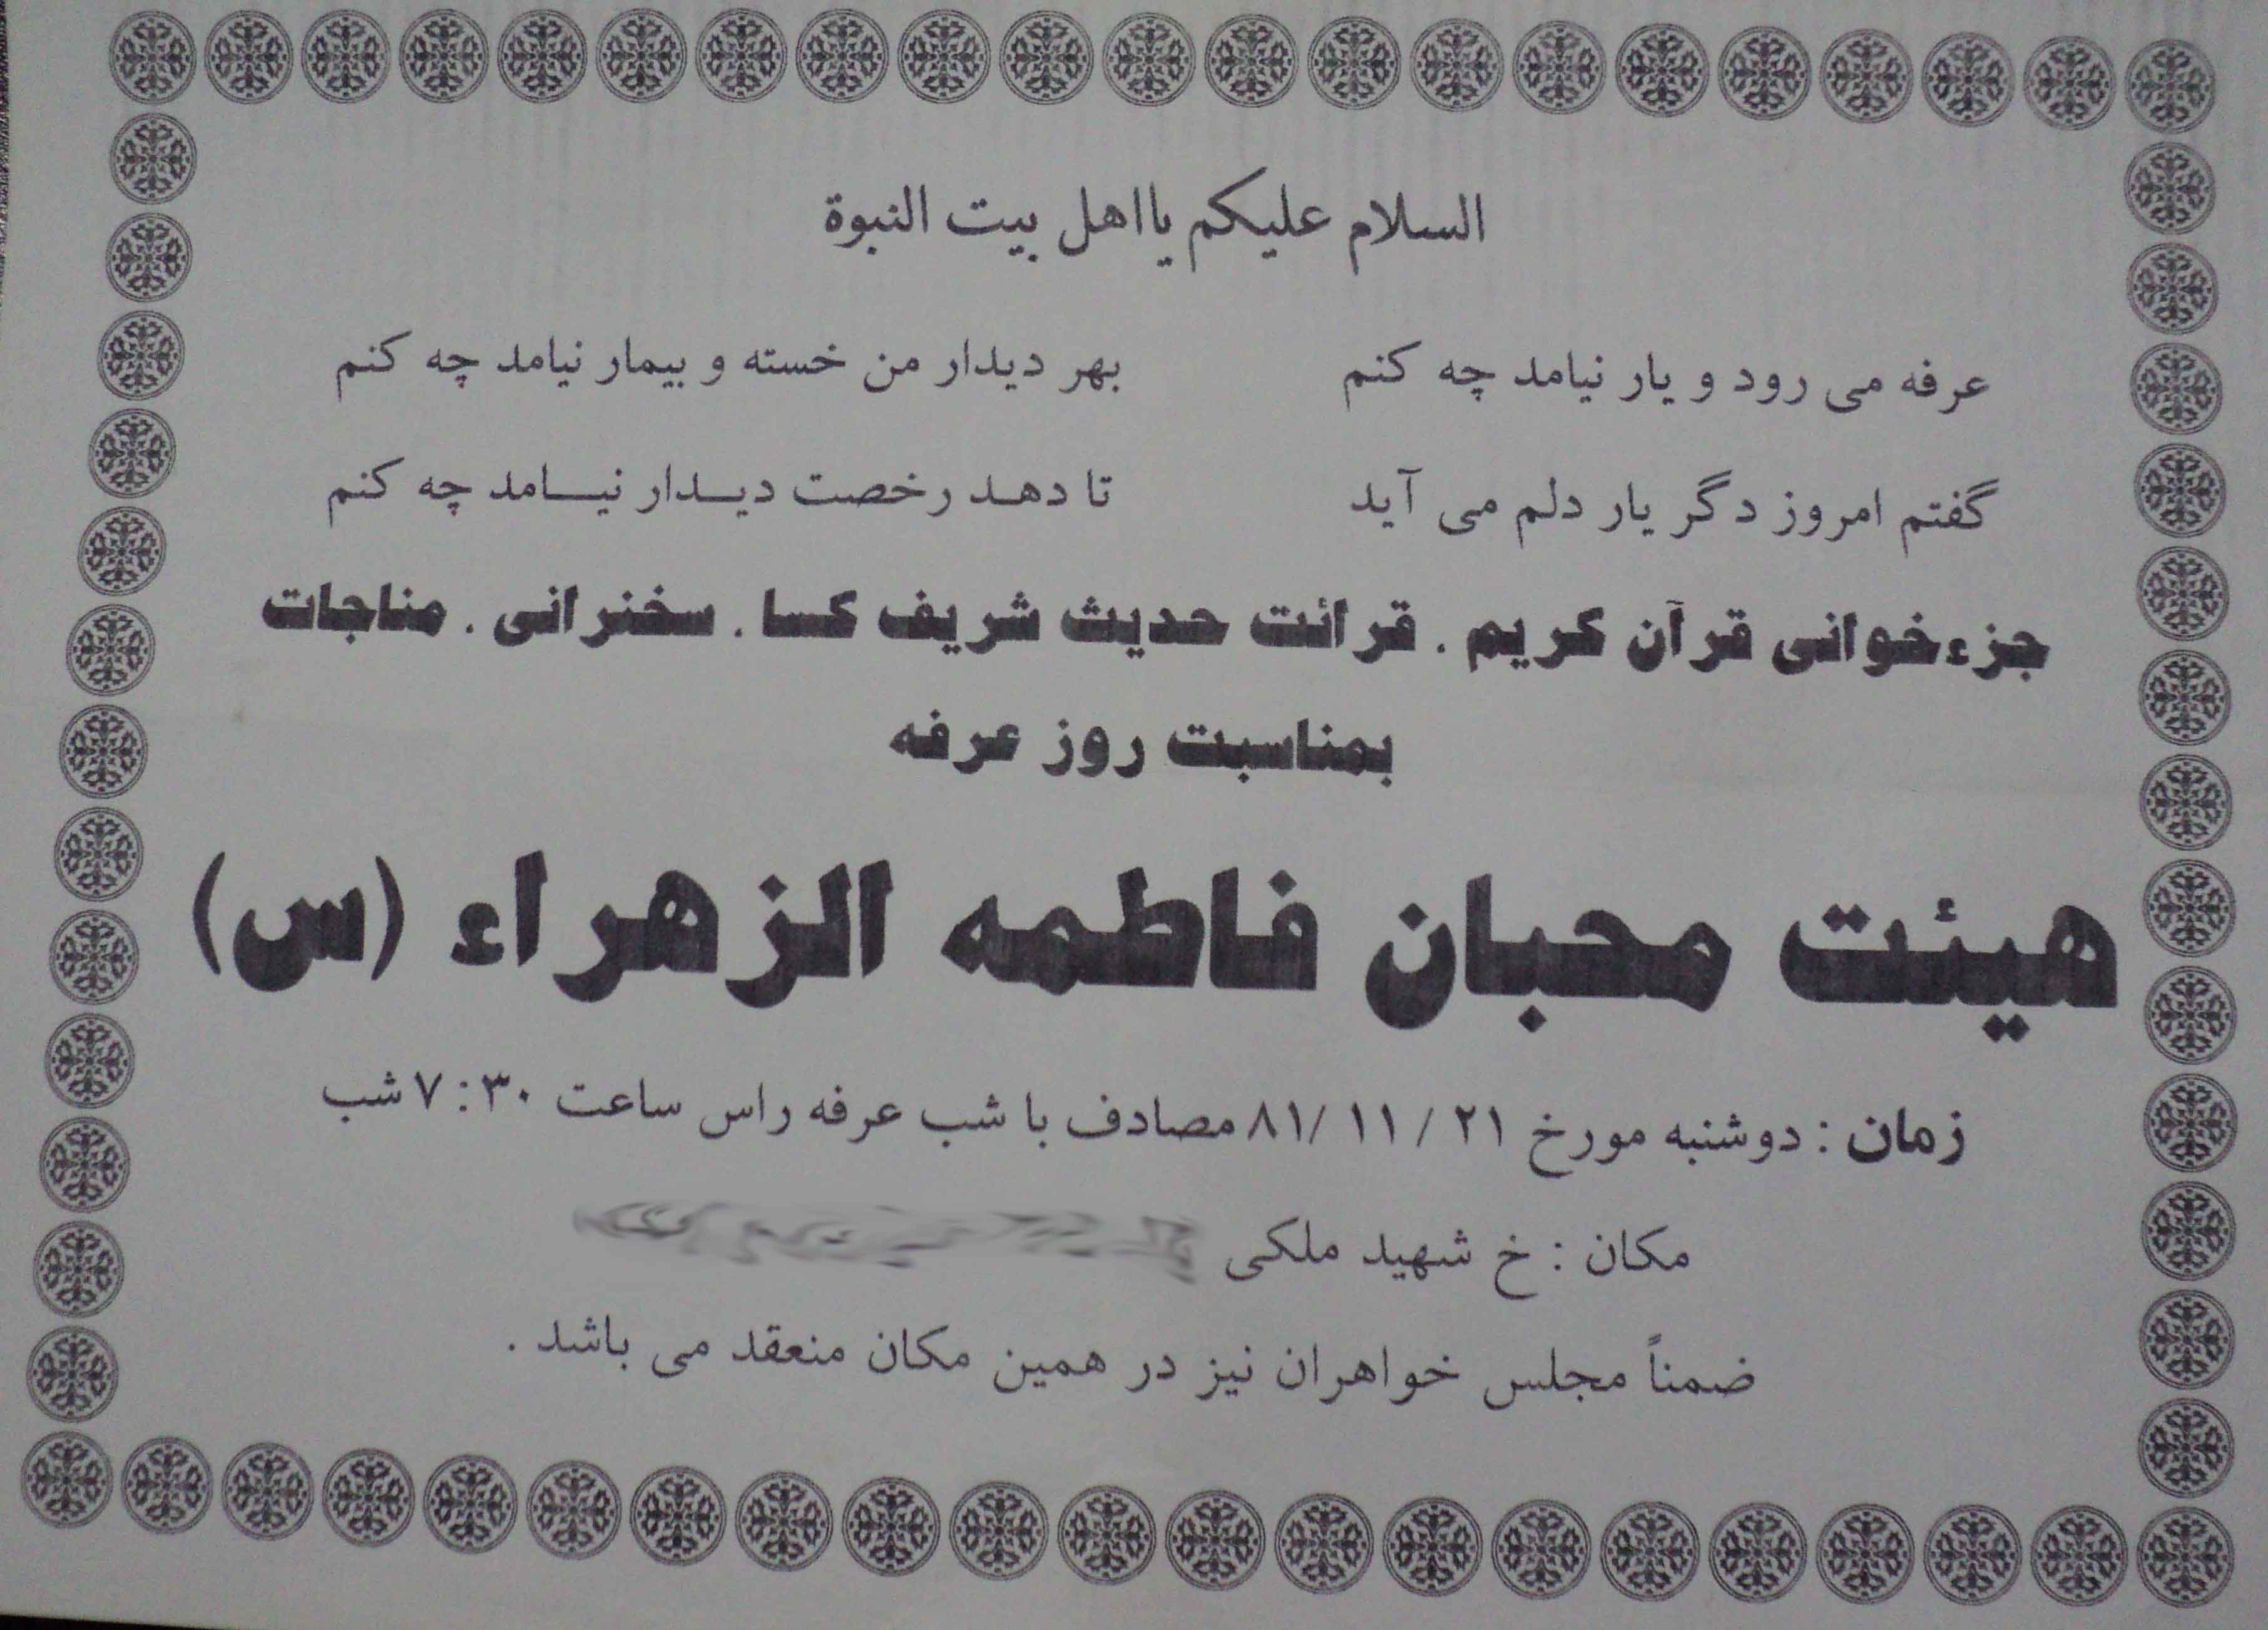 السلام علیکم یااهل بیت النبوة
عرفه می رود و یار نیامد چه کنم بهر دیدار من خسته و بیمار نیامد چه کنم
گفتم امروز دگر یار دلم می آید تا دهد رخصت دیدار نیامد چه کنم
جزءخوانی قرآن کریم . قرائت حدیث شریف کسا . سخنرانی . مناجات
بمناسبت روز عرفه
هیئت محبان فاطمه الزهراء (س)
زمان : دوشنبه مورخ ۸۱/۱۱/۲۱ مصادف با شب عرفه راس ساعت ۷:۳۰ شب
مکان : خ شهید ملکی
ضمناً مجلس خواهران نیز در همین مکان منعقد می باشد .